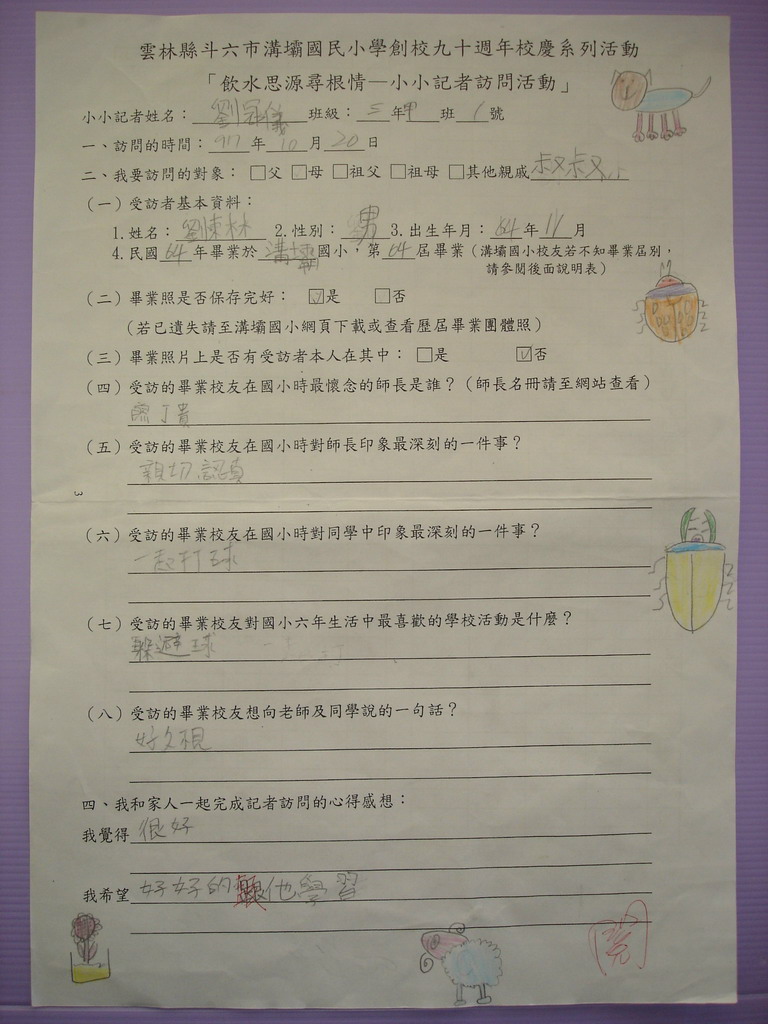 雲林縣斗六市溝壩國民小學創校九十週年校慶系列活動
「飲水思源尋根情—小小記者訪問活動」
小小記者姓名：劉冠儀 班級：三年甲班 1 號
一、訪問的時間：97年10月20日
二、我要訪問的對象：□父 □母 □祖父 □祖母 □其他親戚叔叔
（一）受訪者基本資料：
1.姓名：劉 林 2.性別：男 3.出生年月：64年11月
4.民國64年畢業於溝壩國小，第64屆畢業（溝壩國小校友若不知畢業屆別，
請參閱後面說明表）
（二）畢業照是否保存完好：☑是 □否
（若已遺失請至溝壩國小網頁下載或查看歷屆畢業團體照）
（三）畢業照片上是否有受訪者本人在其中：□是 ☑否
（四）受訪的畢業校友在國小時最懷念的師長是誰？（師長名冊請至網站查看）
廖丁貴
（五）受訪的畢業校友在國小時對師長印象最深刻的一件事？
親切認真
3
（六）受訪的畢業校友在國小時對同學中印象最深刻的一件事？
一起打球
（七）受訪的畢業校友對國小六年生活中最喜歡的學校活動是什麼？
躲避球
（八）受訪的畢業校友想向老師及同學說的一句話？
好久不見
四、我和家人一起完成記者訪問的心得感想：
我覺得很好
我希望好好的跟他學習
閱